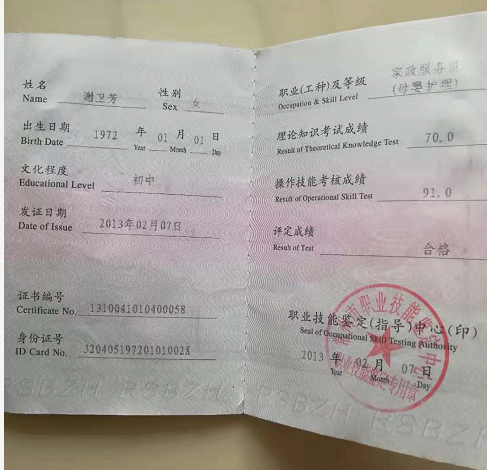 姓名 谢卫芳 性别 女
Name Sex
出生日期 1972 年 01 月 01 日
Birth Date Year Month Day
文化程度 初中
Educational Level
发证日期 2013年02月07日
Date of Issue
证书编号 1310041010400058
Certificate No.
身份证号 32040519720101002X
ID Card No.
职业(工种)及等级 家政服务员
Occupation & Skill Level (母婴护理)
理论知识考试成绩 70.0
Result of Theoretical Knowledge Test
操作技能考核成绩 91.0
Result of Operational Skill Test
评定成绩 合格
Result of Test
职业技能鉴定(指导)中心(印)
Seal of Occupational Skill Testing Authority
2013 年 02 月 07 日
Year Month Day
市职业技能鉴定中心
职业技能鉴定专用章
RSBZH RSBZH